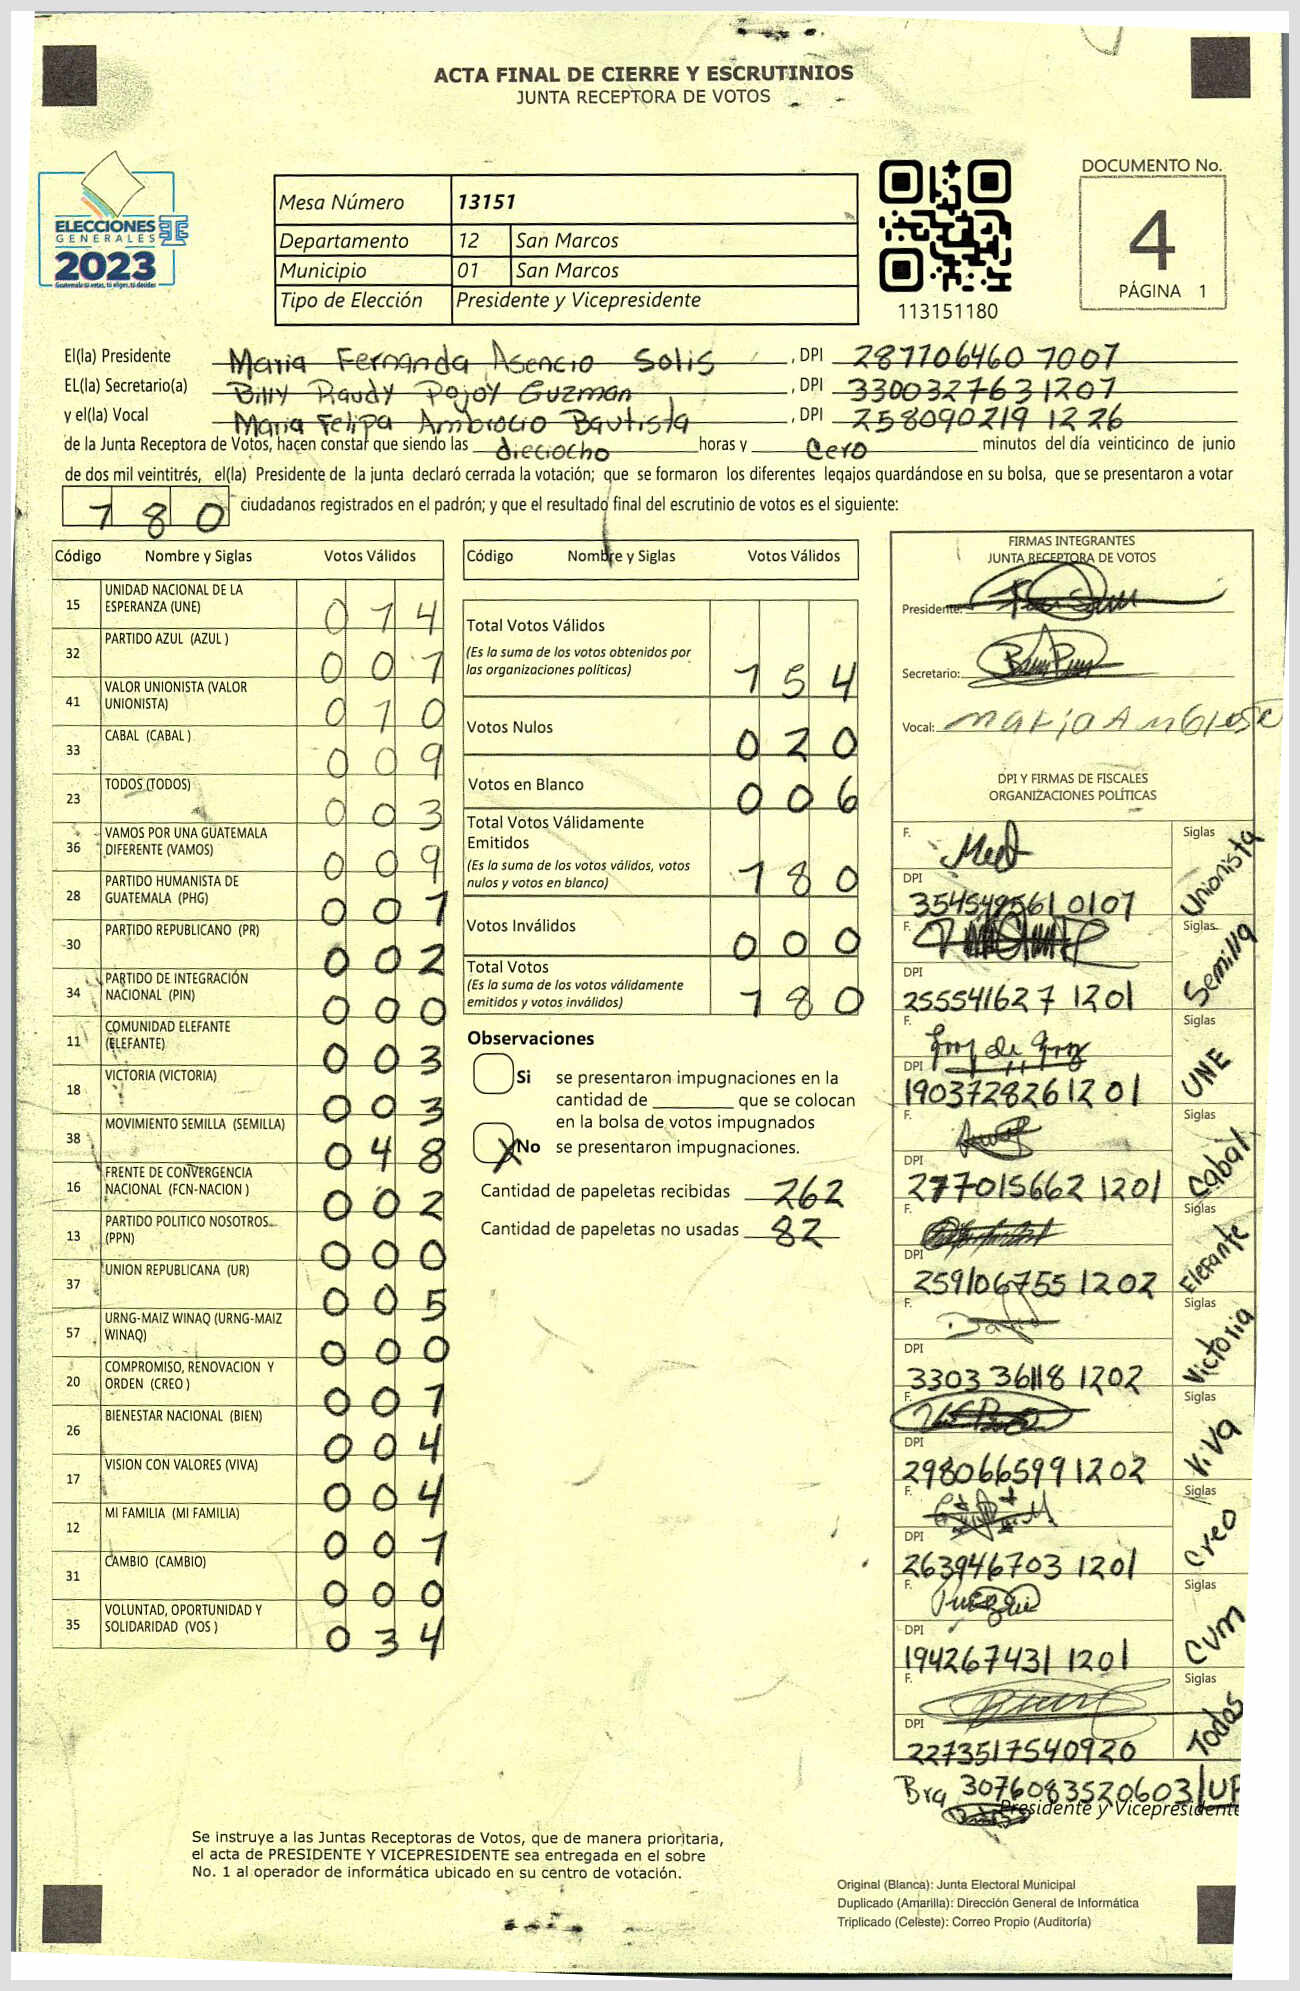 ACTA FINAL DE CIERRE Y ESCRUTINIOS
JUNTA RECEPTORA DE VOTOS
ELECCIONES
GENERALES
2023
Guatemala tú votas, tú eliges, tú decides
Mesa Número 13151
Departamento 12 San Marcos
Municipio 01 San Marcos
Tipo de Elección Presidente y Vicepresidente
113151180
DOCUMENTO No.
4
PÁGINA 1
El(la) Presidente Maria Fernanda Asencio Solis , DPI 287706460 7007
EL(la) Secretario(a) Billy Raudy Pojoy Guzman , DPI 330032763 1207
y el(la) Vocal Maria Felipa Ambrocio Bautista , DPI 258090219 1226
de la Junta Receptora de Votos, hacen constar que siendo las dieciocho horas y Cero minutos del día veinticinco de junio
de dos mil veintitrés, el(la) Presidente de la junta declaró cerrada la votación; que se formaron los diferentes legajos guardándose en su bolsa, que se presentaron a votar
180 ciudadanos registrados en el padrón; y que el resultado final del escrutinio de votos es el siguiente:
Código Nombre y Siglas Votos Válidos
15 UNIDAD NACIONAL DE LA
ESPERANZA (UNE) 014
32 PARTIDO AZUL (AZUL ) 001
41 VALOR UNIONISTA (VALOR
UNIONISTA) 010
33 CABAL (CABAL ) 009
23 TODOS (TODOS) 003
36 VAMOS POR UNA GUATEMALA
DIFERENTE (VAMOS) 009
28 PARTIDO HUMANISTA DE
GUATEMALA (PHG) 001
30 PARTIDO REPUBLICANO (PR) 002
34 PARTIDO DE INTEGRACIÓN
NACIONAL (PIN) 000
11 COMUNIDAD ELEFANTE
(ELEFANTE) 003
18 VICTORIA (VICTORIA) 003
38 MOVIMIENTO SEMILLA (SEMILLA) 048
16 FRENTE DE CONVERGENCIA
NACIONAL (FCN-NACION ) 002
13 PARTIDO POLITICO NOSOTROS
(PPN) 000
37 UNION REPUBLICANA (UR) 005
57 URNG-MAIZ WINAQ (URNG-MAIZ
WINAQ) 000
20 COMPROMISO, RENOVACION Y
ORDEN (CREO ) 001
26 BIENESTAR NACIONAL (BIEN) 004
17 VISION CON VALORES (VIVA) 004
12 MI FAMILIA (MI FAMILIA) 001
31 CAMBIO (CAMBIO) 000
35 VOLUNTAD, OPORTUNIDAD Y
SOLIDARIDAD (VOS ) 034
Código Nombre y Siglas Votos Válidos
Total Votos Válidos
(Es la suma de los votos obtenidos por
las organizaciones políticas) 154
Votos Nulos 020
Votos en Blanco 006
Total Votos Válidamente
Emitidos
(Es la suma de los votos válidos, votos
nulos y votos en blanco) 180
Votos Inválidos 000
Total Votos
(Es la suma de los votos válidamente
emitidos y votos inválidos) 180
Observaciones
Si se presentaron impugnaciones en la
cantidad de ________ que se colocan
en la bolsa de votos impugnados
X No se presentaron impugnaciones.
Cantidad de papeletas recibidas 262
Cantidad de papeletas no usadas 82
FIRMAS INTEGRANTES
JUNTA RECEPTORA DE VOTOS
Presidente:
Secretario:
Vocal:
DPI Y FIRMAS DE FISCALES
ORGANIZACIONES POLÍTICAS
F. Siglas Unionista
DPI
354549561 0107
F. Siglas Semilla
DPI
255541627 1201
F. Siglas UNE
DPI
190372826 1201
F. Siglas Cabal
DPI
277015662 1201
F. Siglas Elefante
DPI
259106755 1202
F. Siglas Victoria
DPI
3303 36118 1202
F. Siglas ViVa
DPI
298066599 1202
F. Siglas Creo
DPI
263946703 1201
F. Siglas CVM
DPI
194267431 1201
F. Siglas Todos
DPI
2273517540920
3076083520603
Presidente y Vicepresidente
Se instruye a las Juntas Receptoras de Votos, que de manera prioritaria,
el acta de PRESIDENTE Y VICEPRESIDENTE sea entregada en el sobre
No. 1 al operador de informática ubicado en su centro de votación.
Original (Blanca): Junta Electoral Municipal
Duplicado (Amarilla): Dirección General de Informática
Triplicado (Celeste): Correo Propio (Auditoría)